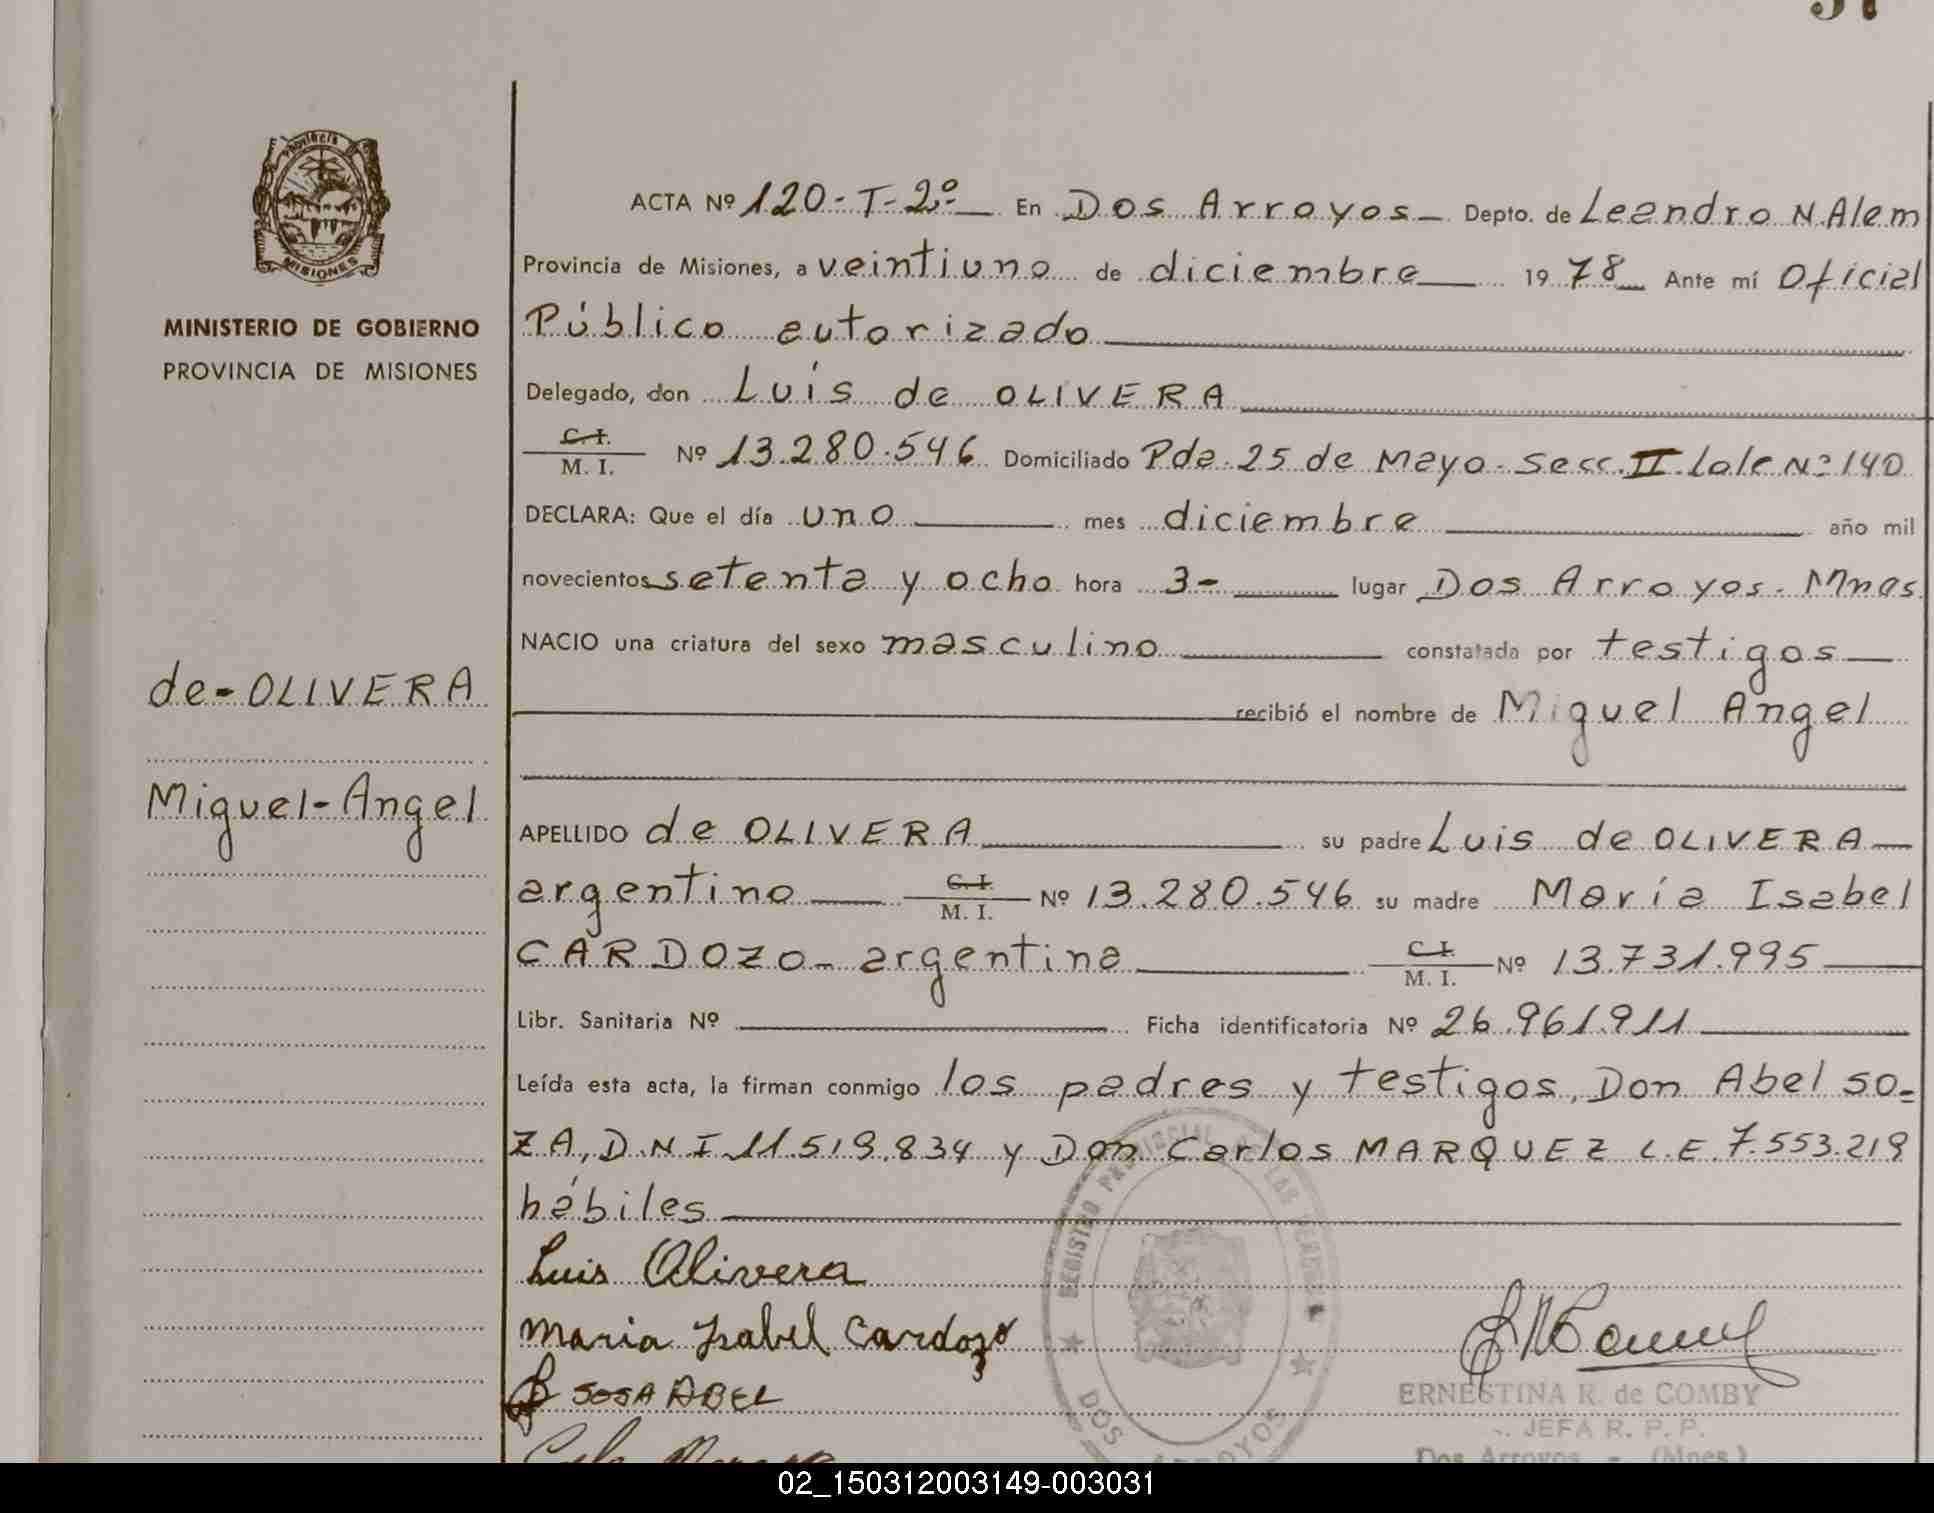 37
Provincia
MISIONES
MINISTERIO DE GOBIERNO
PROVINCIA DE MISIONES
de-OLIVERA
Miguel-Angel
ACTA Nº 120-T-2º- En Dos Arroyos- Depto. de Leandro N. Alem
Provincia de Misiones, a veintiuno de diciembre 1978 Ante mí Oficial
Público autorizado
Delegado, don Luis de OLIVERA
C.I. M. I. Nº 13.280.546 Domiciliado Pda. 25 de Mayo-Secc. II lote Nº 140
DECLARA: Que el día uno mes diciembre año mil
novecientos setenta y ocho hora 3- lugar Dos Arroyos. Mnes
NACIO una criatura del sexo masculino constatada por testigos
recibió el nombre de Miguel Angel
APELLIDO de OLIVERA su padre Luis de OLIVERA
argentino C.I. M. I. Nº 13.280.546 su madre María Isabel
CARDOZO- argentina C.I. M. I. Nº 13.731.995
Libr. Sanitaria Nº Ficha identificatoria Nº 26.961.911
Leída esta acta, la firman conmigo los padres y testigos, Don Abel SO=
ZA, D.N.I 11.519.834 y Don Carlos MARQUEZ L.E. 7.553.219
hábiles
Luis Olivera
Maria Isabel Cardozo
SOSA ABEL
REGISTRO PROVINCIAL DE LAS PERSONAS
DOS ARROYOS
ERNESTINA R. de COMBY
JEFA R. P. P.
Dos Arroyos - (Mnes.)
02_150312003149-003031